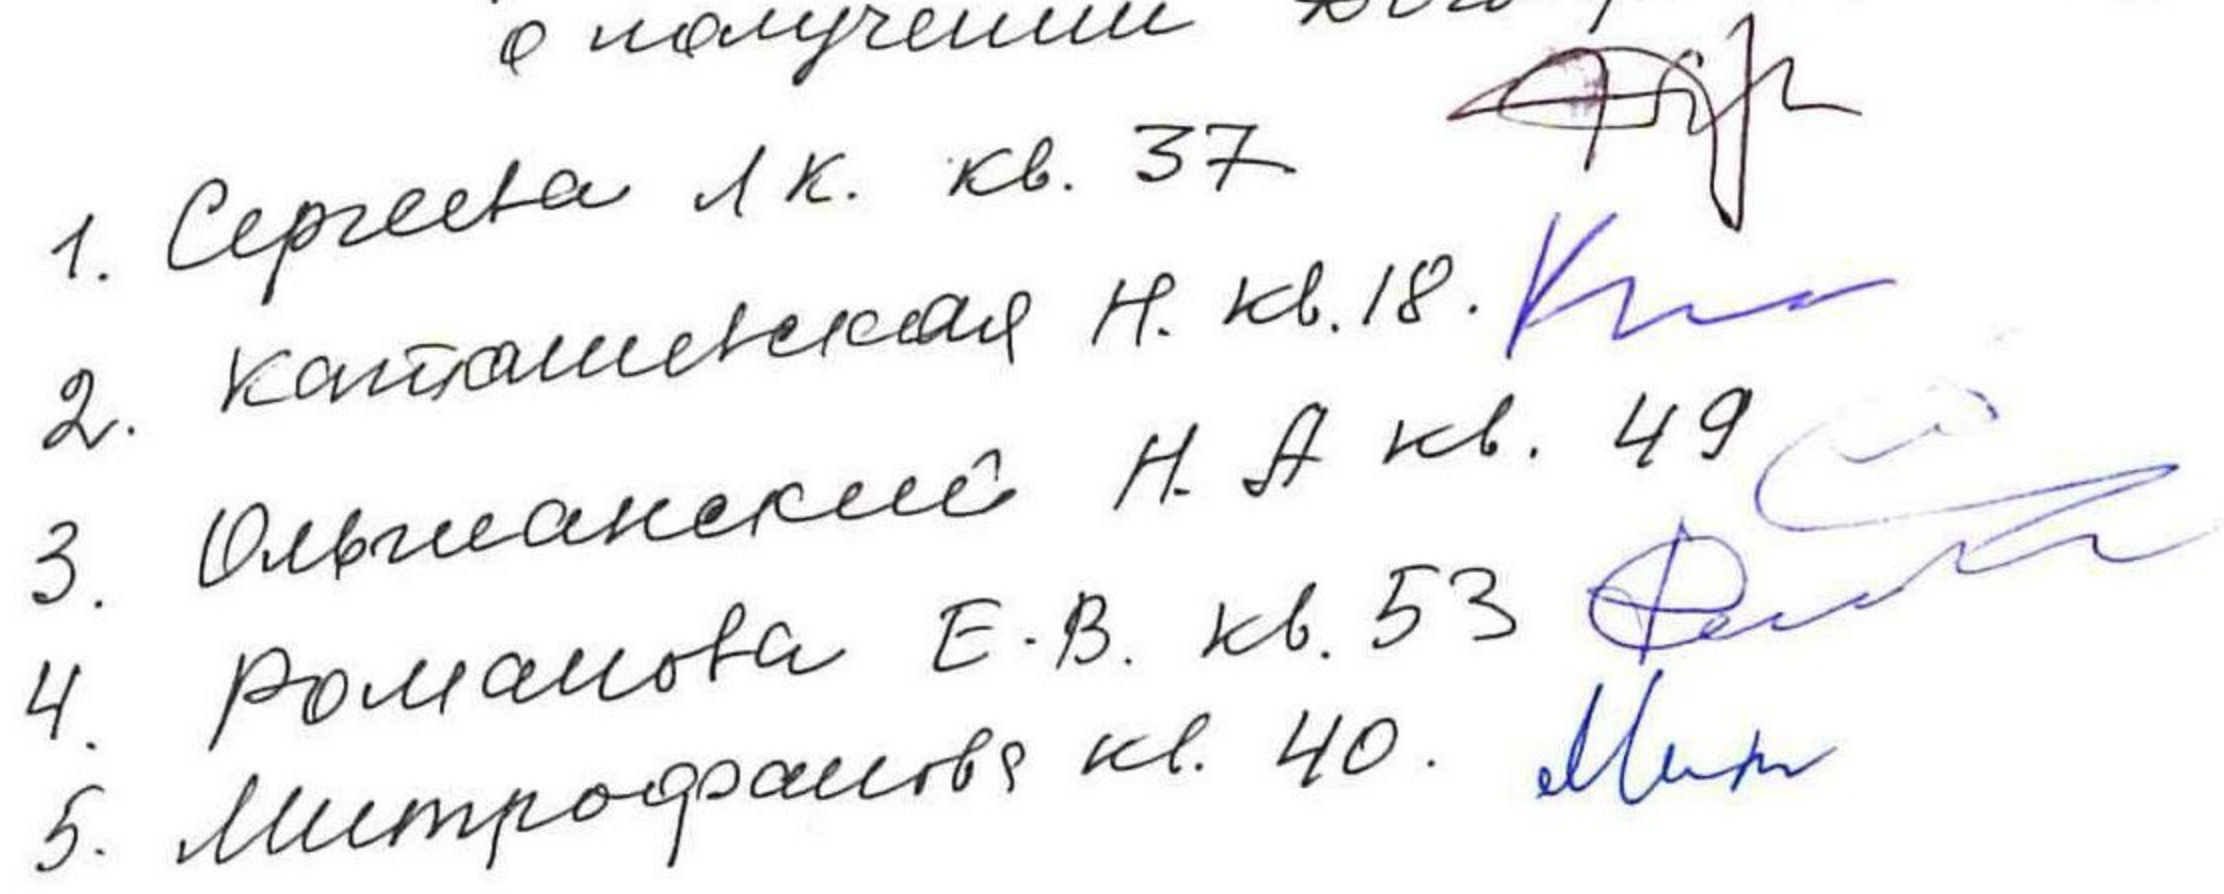 о получении
1. Сергеева Л К. кв. 37
2. Н. кв. 18.
3. Ольшанский Н. А кв. 49
4. Романова Е. В. кв. 53
5. Митрофанова кв. 40.